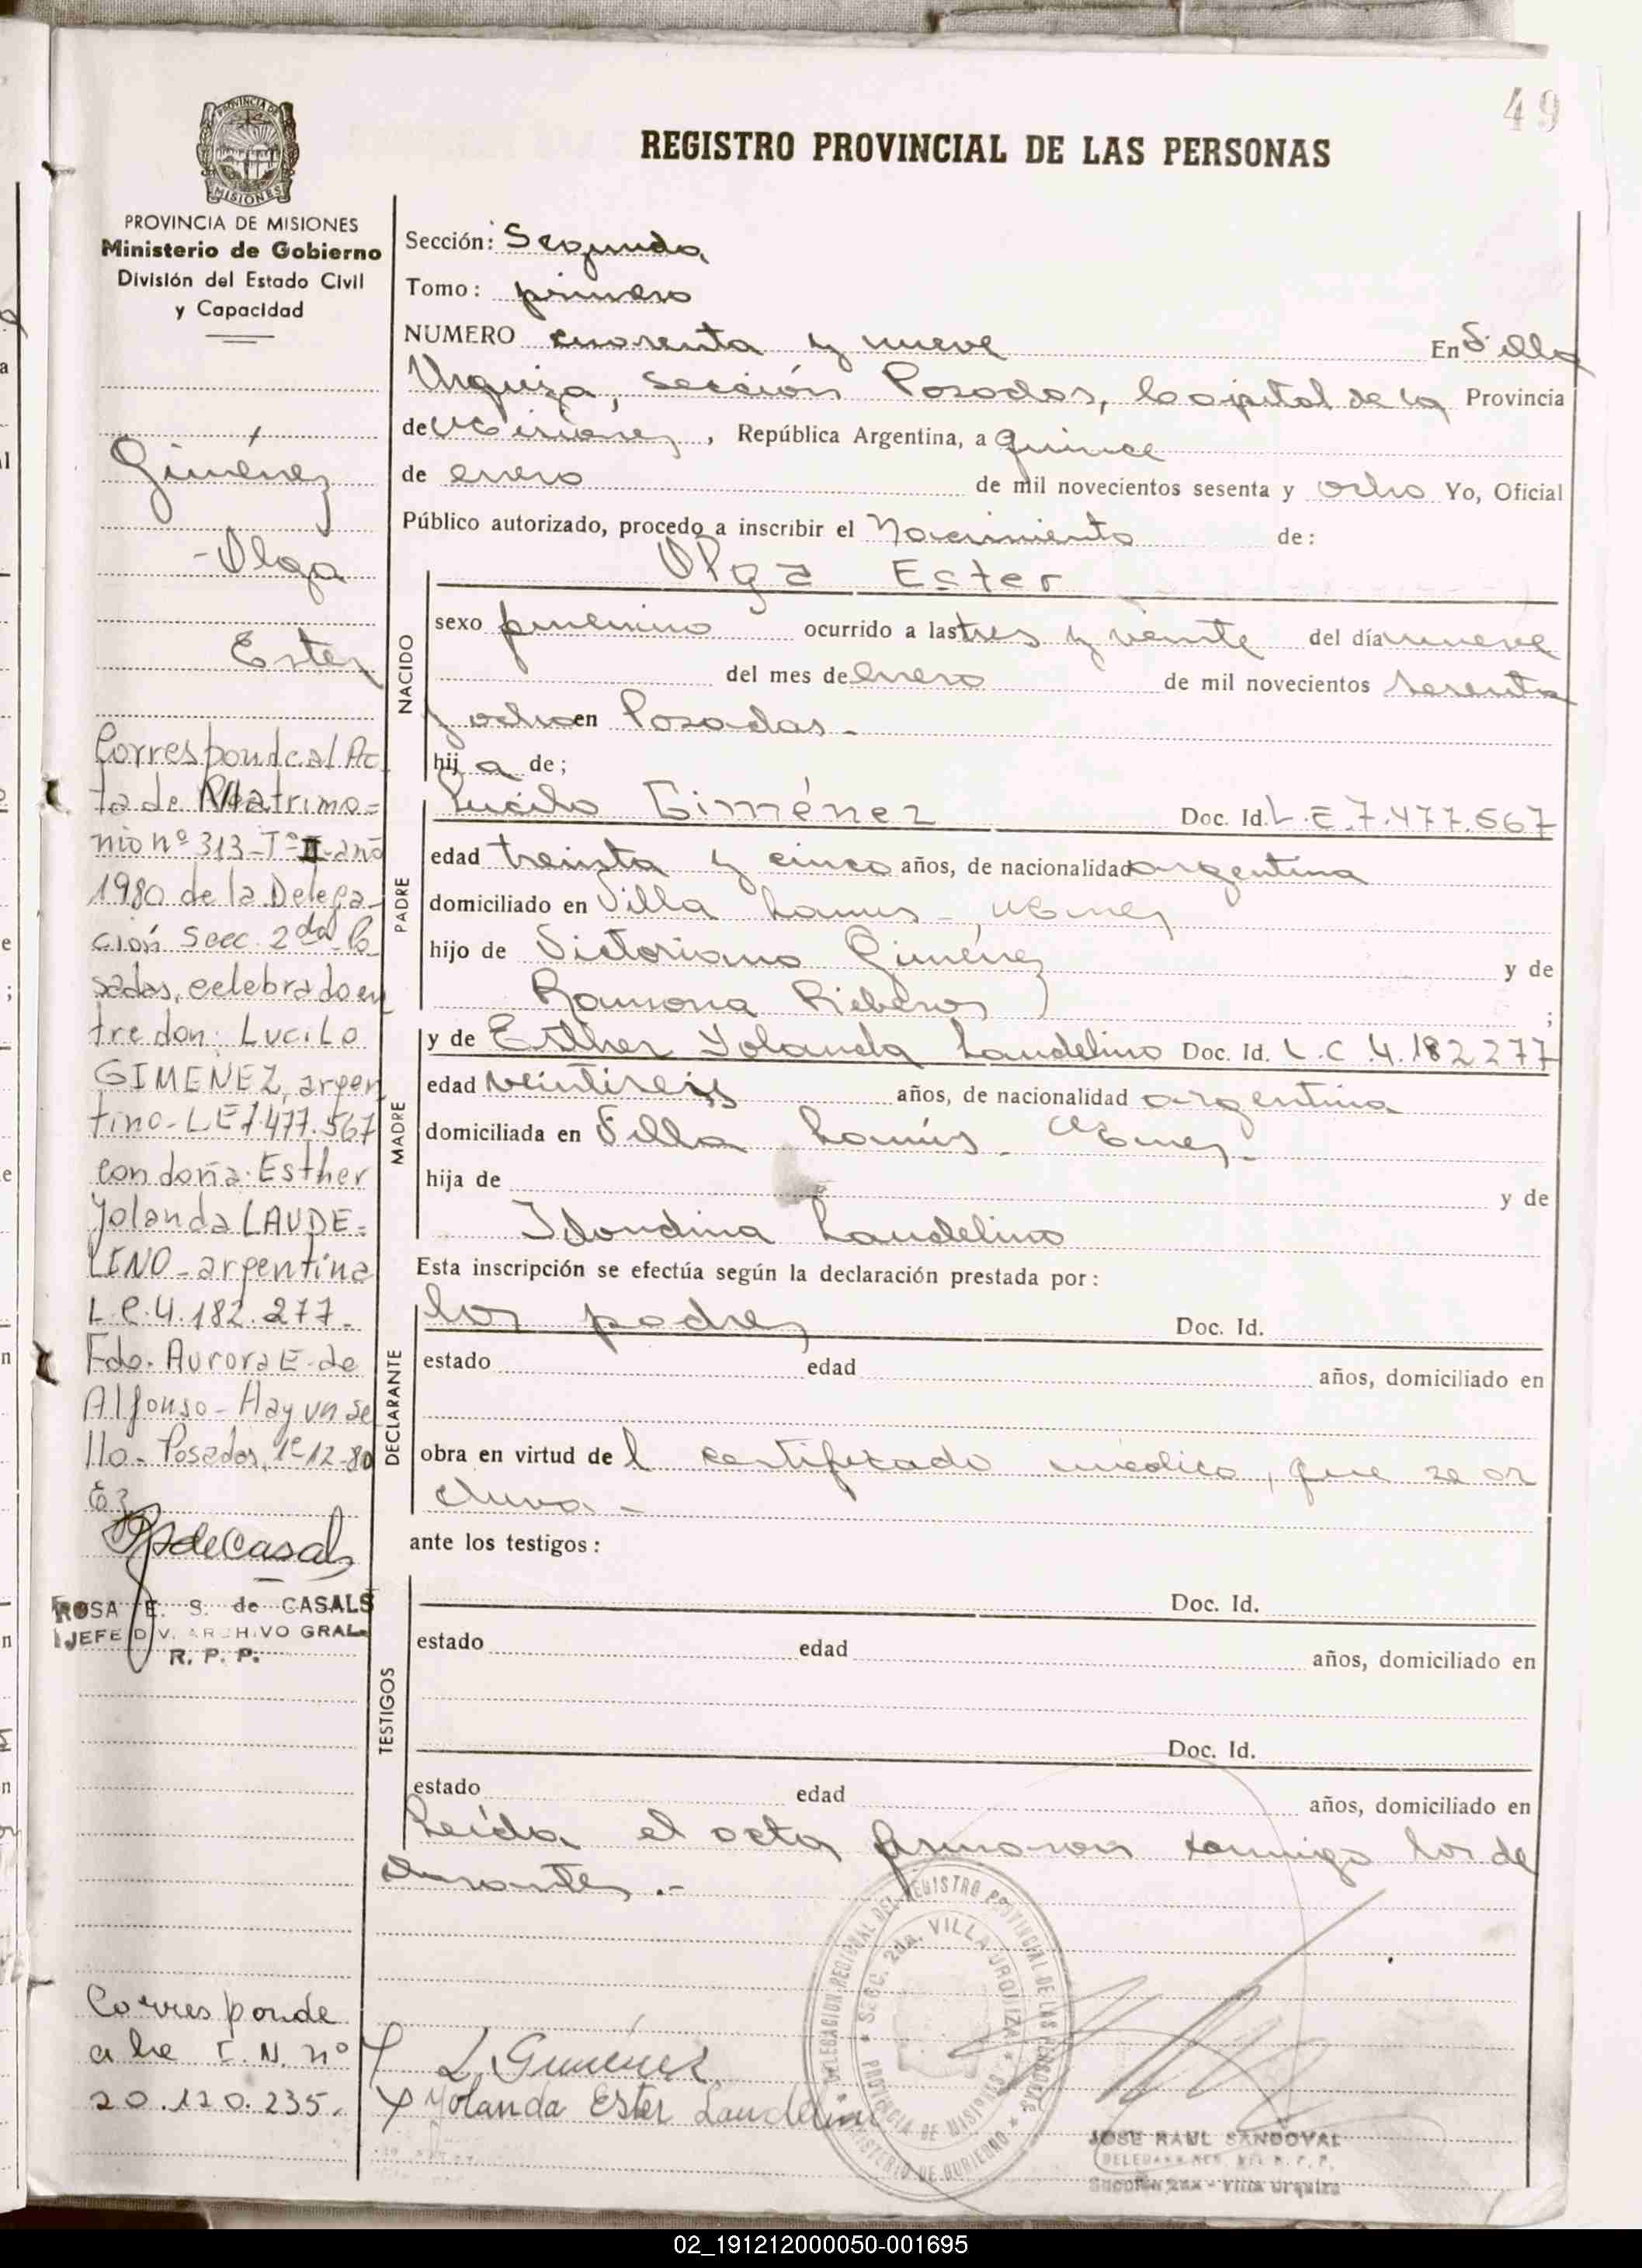 49
PROVINCIA DE
MISIONES
REGISTRO PROVINCIAL DE LAS PERSONAS
PROVINCIA DE MISIONES
Ministerio de Gobierno
División del Estado Civil
y Capacidad
Giménez
- Olga
Ester
Corresponde al Ac
ta de Matrimo=
nio nº 313-Tº II-año
1980 de la Delega
ción Secc. 2da Po
sadas, celebrado en
tre don: Lucilo
GIMENEZ, argen
tino-LE 7.477.567
con doña: Esther
Yolanda LAUDE=
LINO-argentina
L.C.4.182.277-
Fdo. Aurora E. de
Alfonso-Hay un se
llo-Posadas, 1º-12-80
ROSA E. S. de CASALS
JEFE DIV. ARCHIVO GRAL.
R. P. P.
Corresponde
a la I. N. nº
20.120.235.
Sección: Segunda
Tomo: primero
NUMERO cuarenta y nueve En Villa
Urquiza, sección Posadas, Capital de la Provincia
de Misiones, República Argentina, a quince
de enero de mil novecientos sesenta y ocho Yo, Oficial
Público autorizado, procedo a inscribir el Nacimiento de:
Olga Ester
NACIDO
sexo femenino ocurrido a las tres y veinte del día nueve
del mes de enero de mil novecientos sesenta
y ocho en Posadas-
hij a de;
PADRE
Lucilo Giménez Doc. Id. L.E.7.477.567
edad treinta y cinco años, de nacionalidad argentina
domiciliado en Villa Lanus - Mnes
hijo de Victoriano Giménez y de
Ramona Riberos ;
MADRE
y de Esther Yolanda Laudelino Doc. Id. L.C 4.182277
edad veintiseis años, de nacionalidad argentina
domiciliada en Villa Lanús - Mnes-
hija de y de
Idondina Laudelino
Esta inscripción se efectúa según la declaración prestada por:
DECLARANTE
los padres Doc. Id.
estado edad años, domiciliado en
obra en virtud de l certificado médico, que se ar
chiva-
ante los testigos:
TESTIGOS
Doc. Id.
estado edad años, domiciliado en
Doc. Id.
estado edad años, domiciliado en
Leída el acta firmaron conmigo los de
clarantes.-
DELEGACION REGIONAL DEL REGISTRO PROVINCIAL DE LAS PERSONAS
MINISTERIO DE GOBIERNO
SECC. 2da. VILLA URQUIZA
PROVINCIA DE MISIONES
L. Gimenez
Yolanda Ester Laudelino
JOSE RAUL SANDOVAL
Sección 2da - Villa Urquiza
02_191212000050-001695